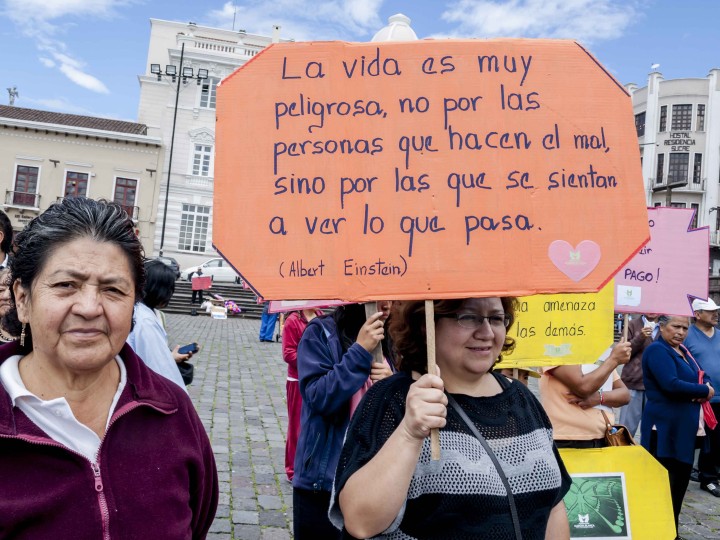 La vida es muy
peligrosa, no por las
personas que hacen el mal,
sino por las que se sientan
a ver lo que pasa.
(Albert Einstein)
HOSTAL
RESIDENCIAL
SUCRE
PAGO!
amenaza
las demás.